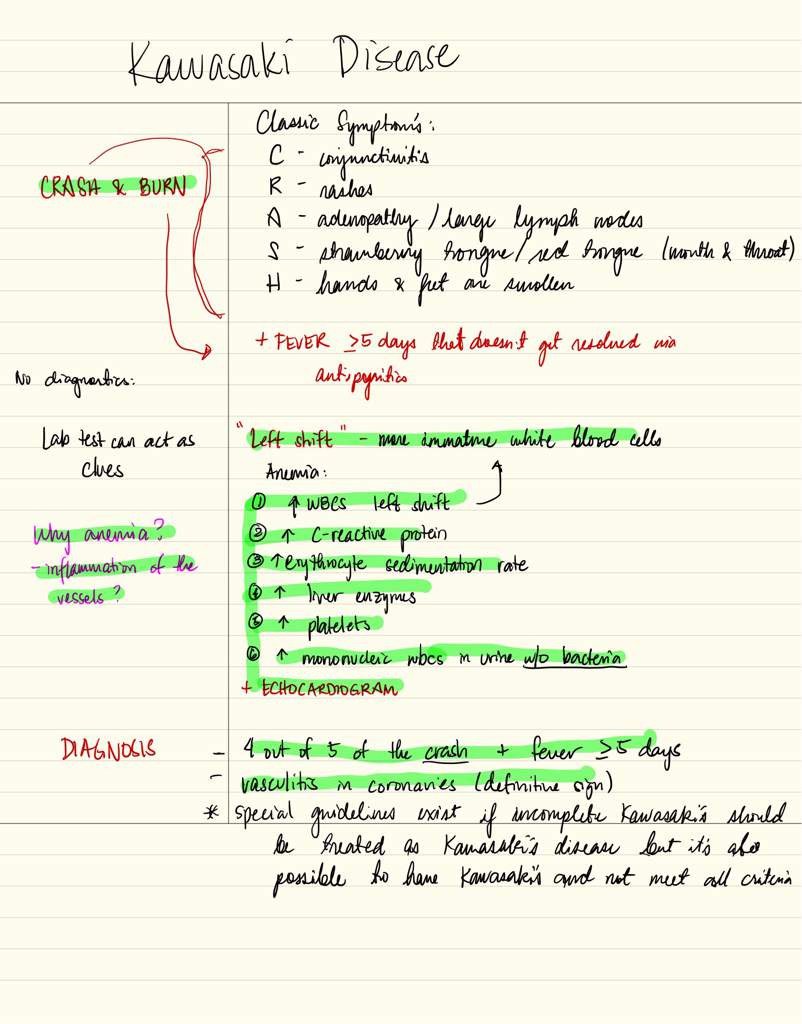 Kawasaki Disease
Classic Symptoms:
CRASH & BURN
C - conjunctivitis
R - rashes
A - adenopathy / large lymph nodes
S - strawberry tongue / red tongue (mouth & throat)
H - hands & feet are swollen
+ FEVER ≥5 days that doesn't get resolved via
antipyritics
No diagnostics:
Lab test can act as
clues
"Left shift" - more immature white blood cells
Anemia:
① ↑ WBCS left shift
② ↑ C-reactive protein
③ ↑ erythrocyte sedimentation rate
④ ↑ liver enzymes
⑤ ↑ platelets
⑥ ↑ mononucleic wbcs in urine w/o bacteria
+ ECHOCARDIOGRAM
Why anemia?
- inflammation of the
vessels?
DIAGNOSIS
- 4 out of 5 of the crash + fever ≥5 days
- vasculitis in coronaries (definitive sign)
* special guidelines exist if incomplete Kawasaki's should
be treated as Kawasaki's disease but it's also
possible to have Kawasaki's and not meet all criteria